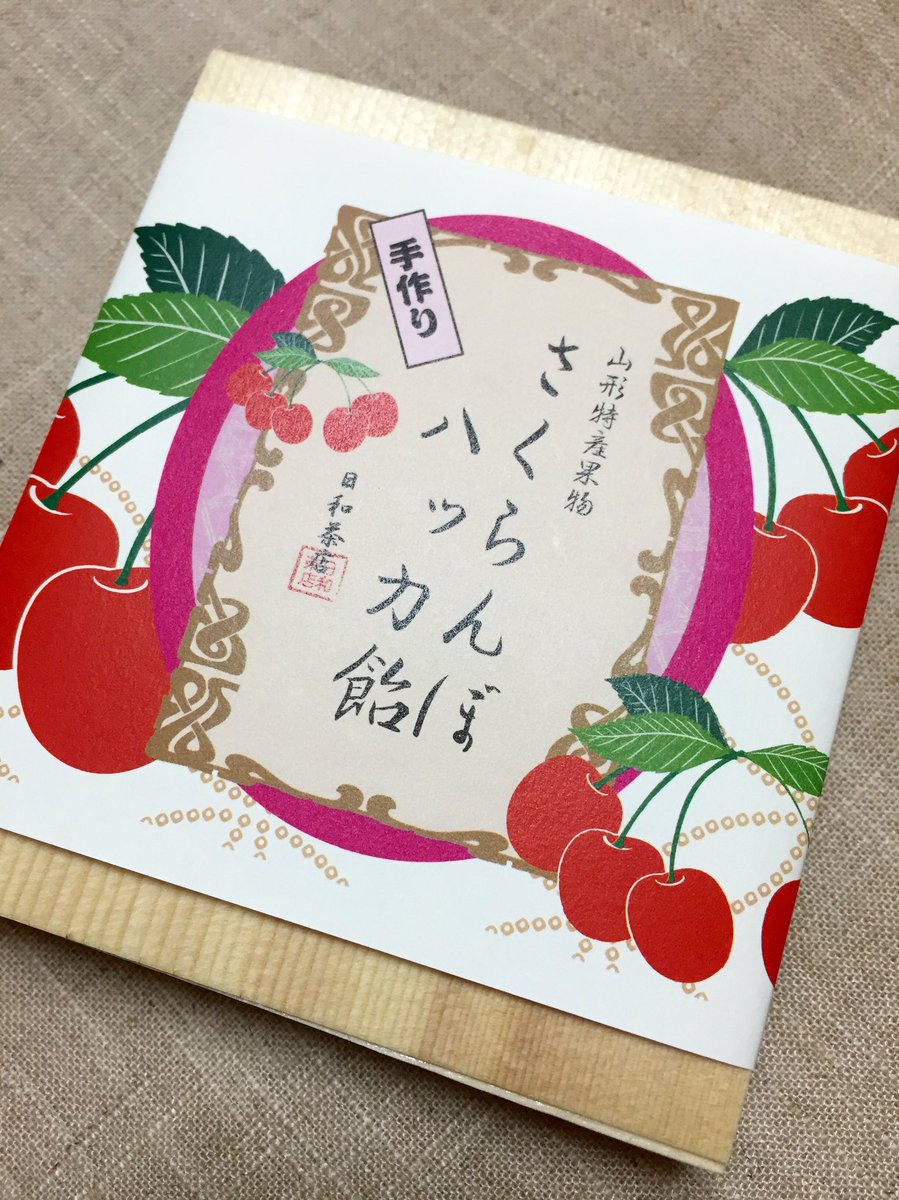 手作り
山形特産果物
さくらんぼ
ハッカ飴
日和茶店